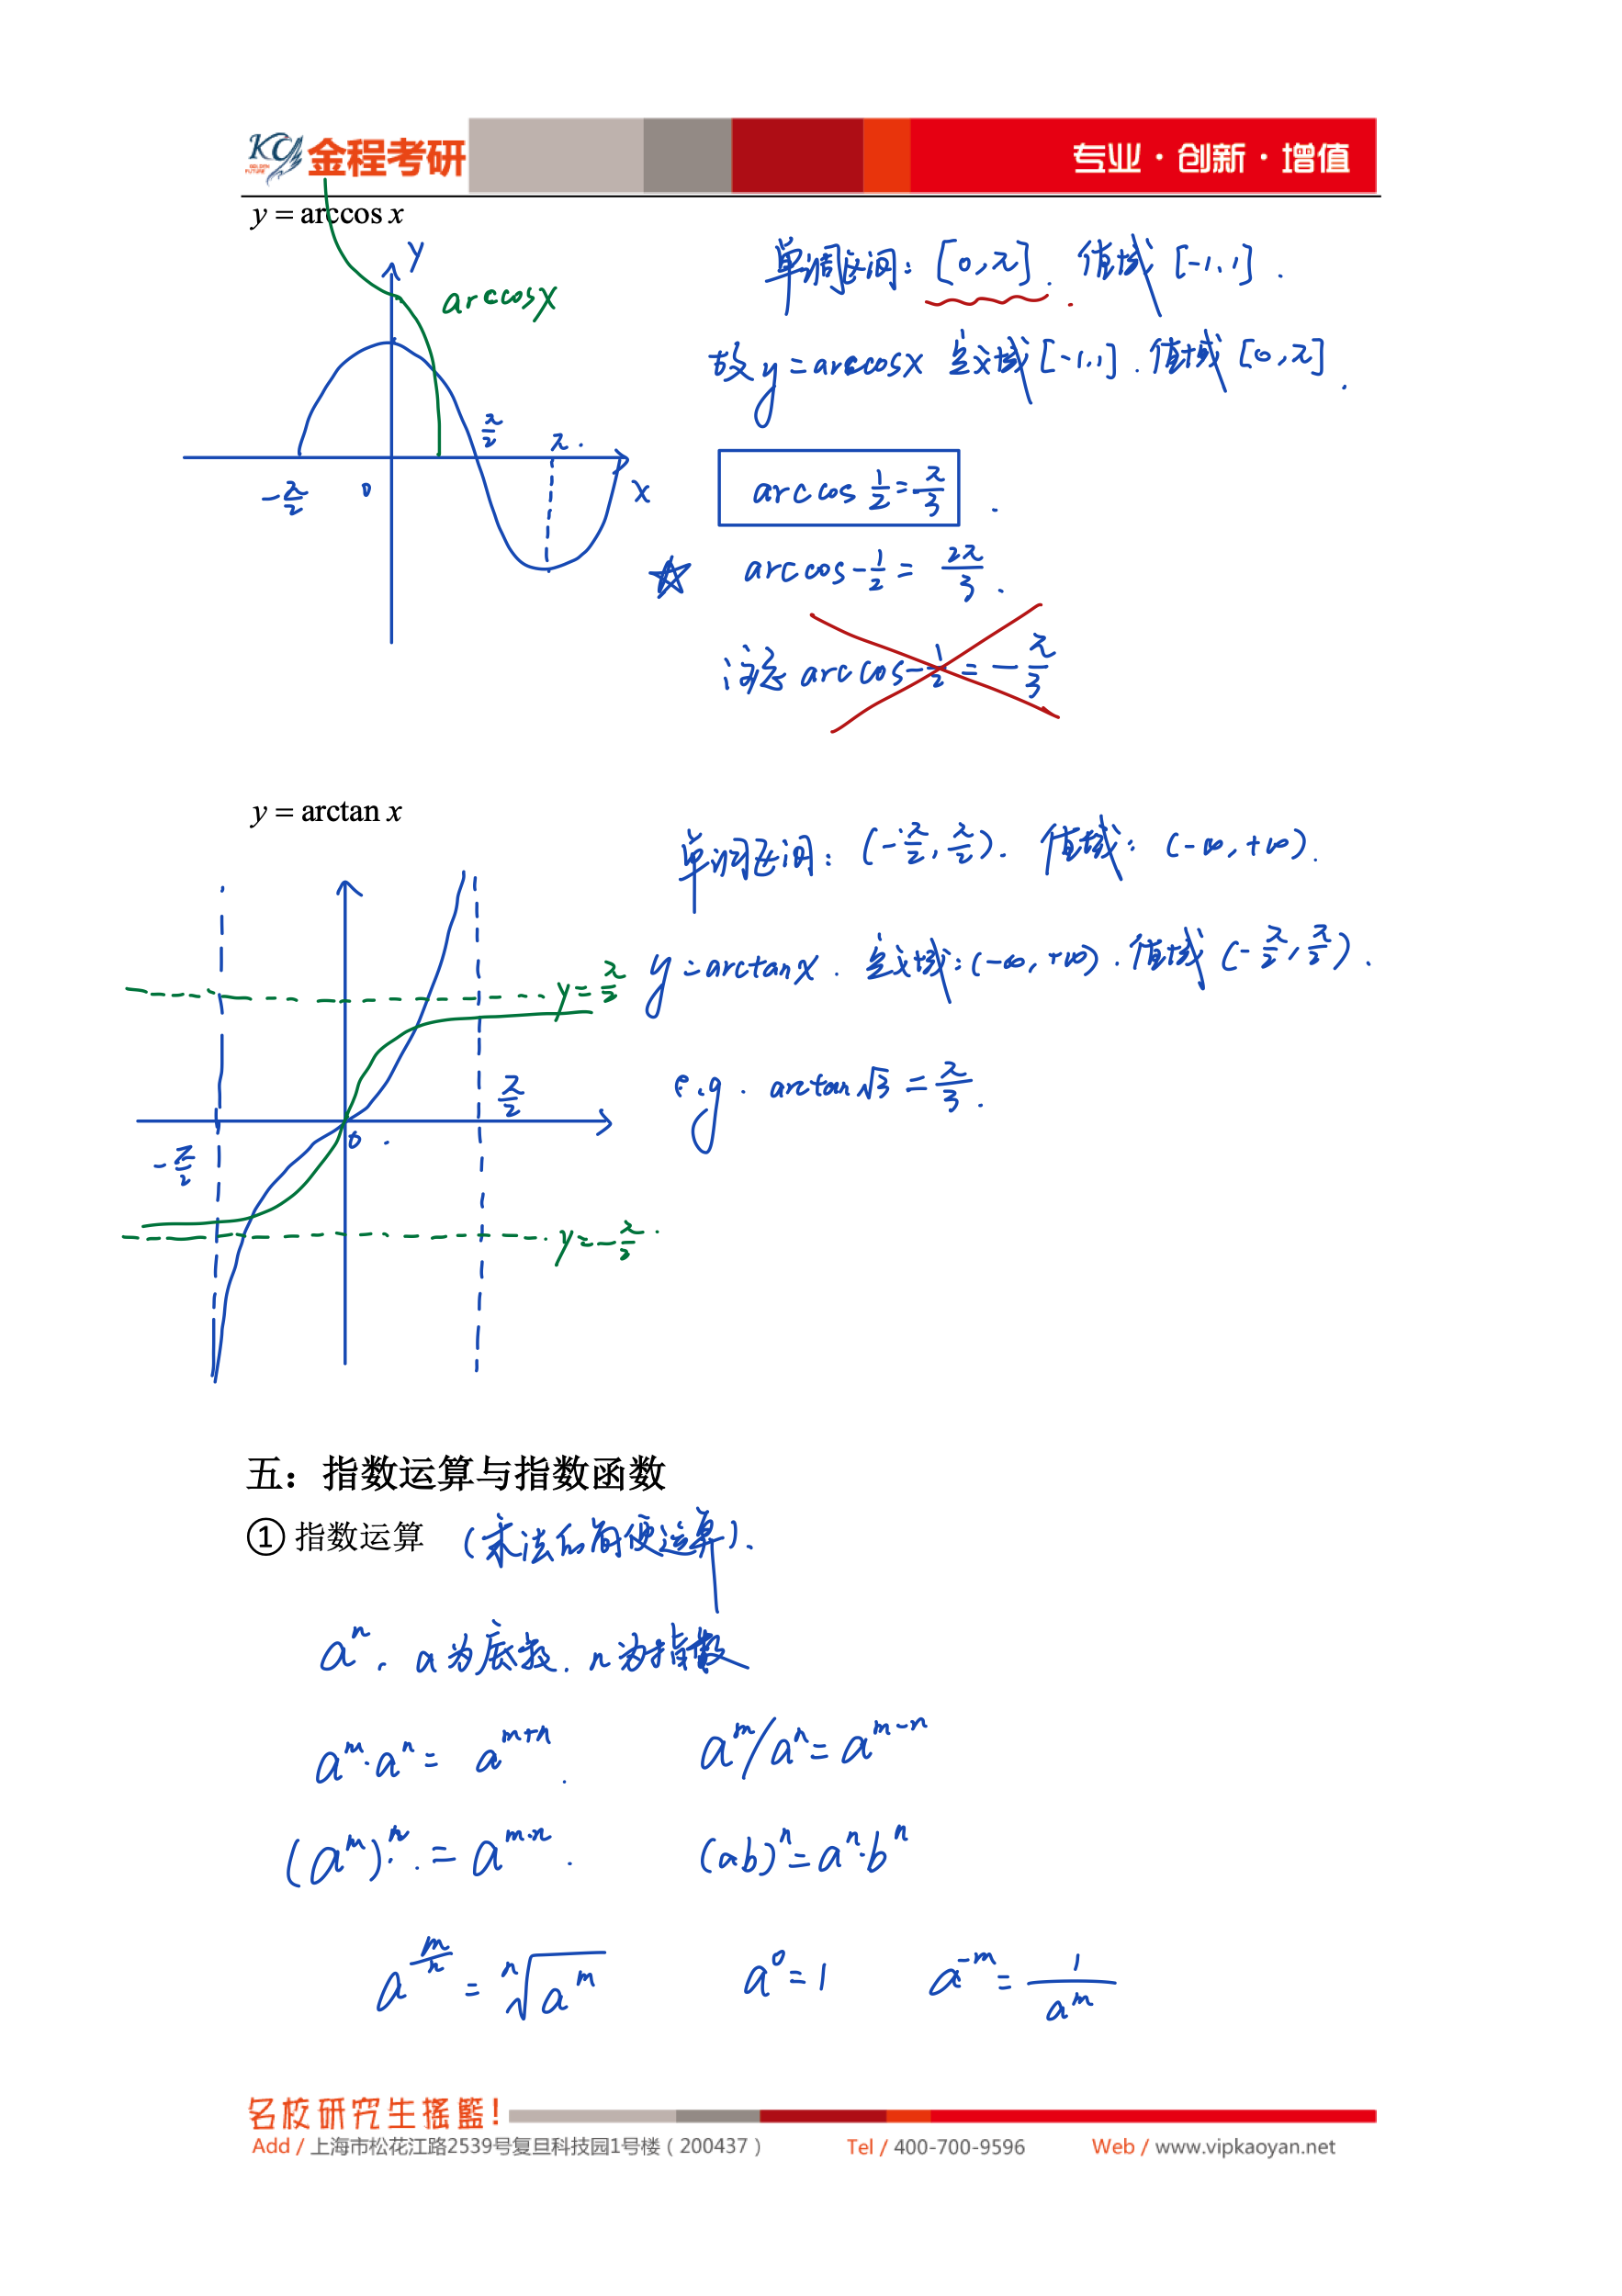 KC 金程考研 专业·创新·增值
GOLDEN FUTURE
y = arccos x
y
arccosx
π/2
π.
-π/2
0
x
单调区间: [0,π]. 值域 [-1,1].
故 y=arccosx 定义域[-1,1]. 值域 [0,π].
arccos 1/2 = π/3.
☆ arccos-1/2 = 2π/3.
注意 arccos-1/2 = -π/3
y = arctan x
单调区间: (-π/2, π/2). 值域: (-∞,+∞).
y=arctanx. 定义域:(-∞,+∞). 值域 (-π/2, π/2).
y=π/2
e.g. arctan√3 = π/3.
π/2
-π/2
0.
y=-π/2.
五：指数运算与指数函数
① 指数运算 (乘法的简便运算).
aⁿ. a为底数. n为指数
aᵐ·aⁿ = aᵐ⁺ⁿ. aᵐ/aⁿ = aᵐ⁻ⁿ
(aᵐ)ⁿ = a^(m·n). (ab)ⁿ = aⁿ·bⁿ
a^(m/n) = ⁿ√(aᵐ) a⁰=1 a⁻ᵐ = 1/aᵐ
名校研究生摇籃!
Add / 上海市松花江路2539号复旦科技园1号楼（200437） Tel / 400-700-9596 Web / www.vipkaoyan.net